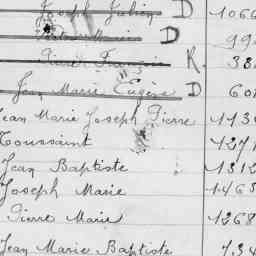 Joseph Julien D 1066
Marie D 99
Pierre François K. 38
Jean Marie Eugène D 601
Jean Marie Joseph Pierre 1134
Toussaint 1271
Jean Baptiste 1312
Joseph Marie 1463
Pierre Marie 1268
Jean Marie Baptiste 734